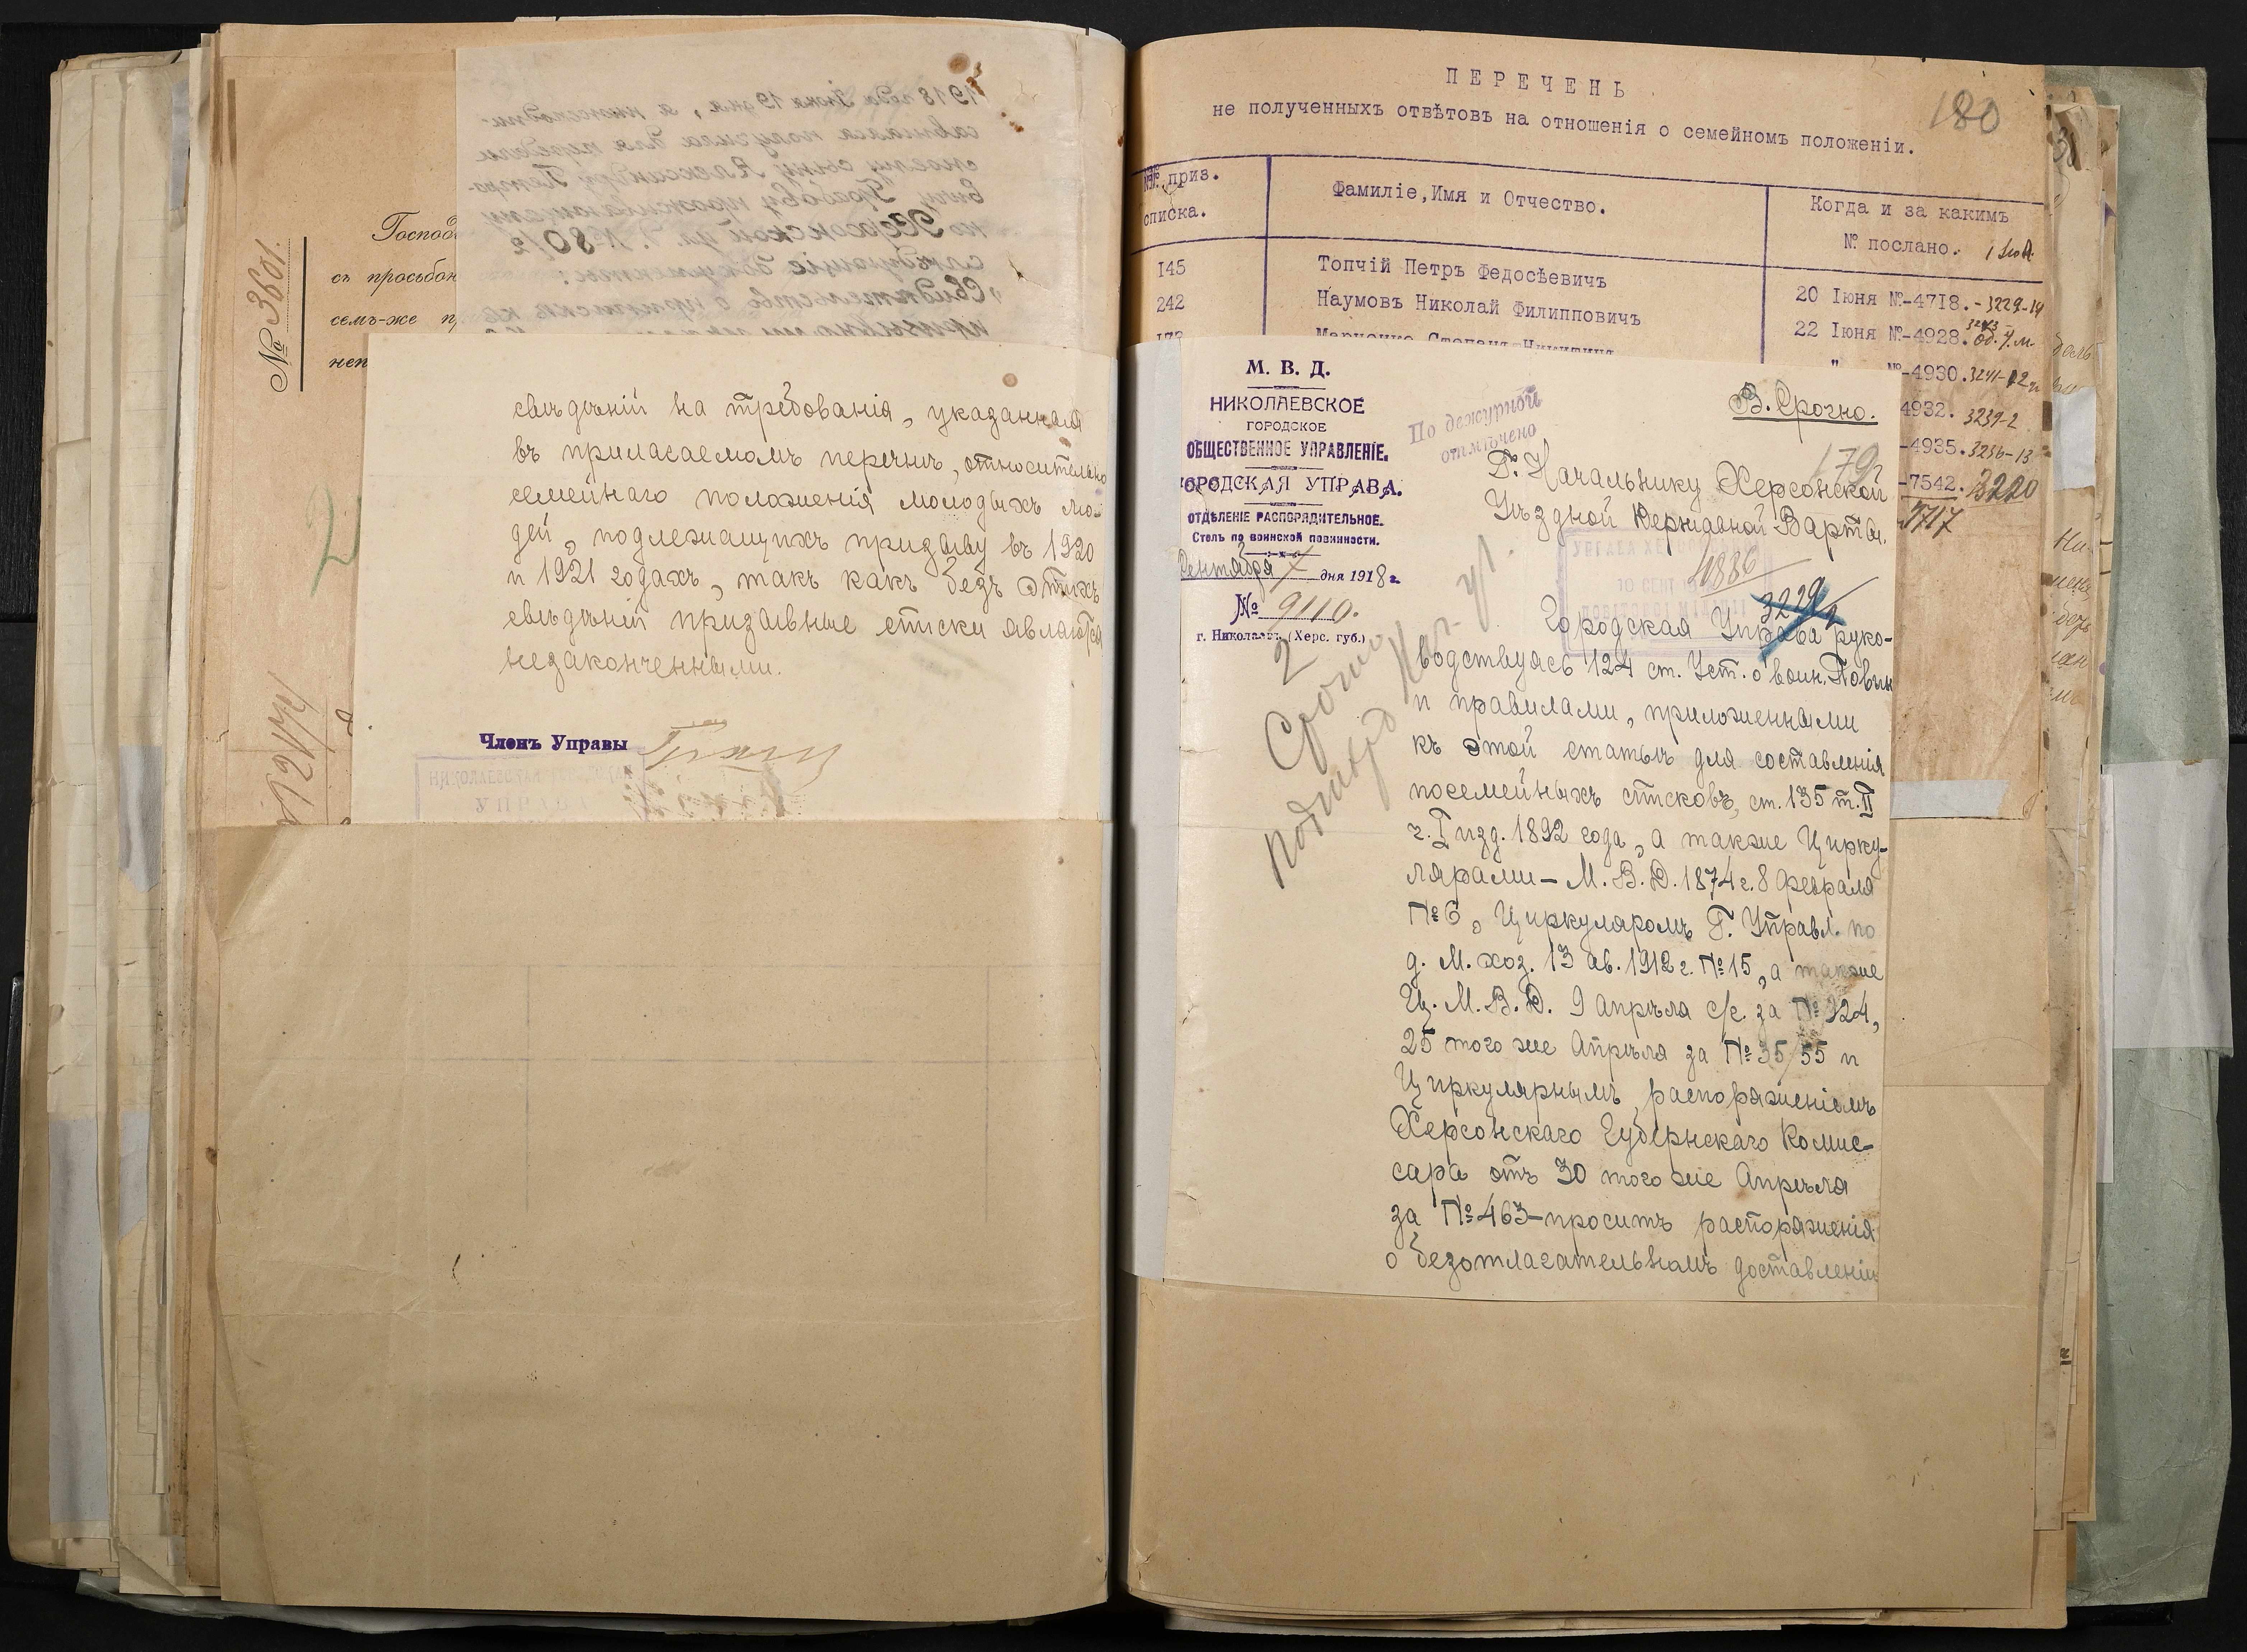 № 3601.
Господ
съ просьбон
семъ-же п
неп
свѣдѣній на требованія, указанныя
въ прилагаемомъ перечнѣ, относительно
семейнаго положенія молодыхъ лю-
дей, подлежащихъ призыву въ 1920
и 1921 годахъ, такъ какъ безъ этихъ
свѣдѣній призывные списки являются
незаконченными.
Членъ Управы
НИКОЛАЕВСКАЯ ГОРОДСКАЯ
УПРАВА
ПЕРЕЧЕНЬ
не полученныхъ отвѣтовъ на отношенія о семейномъ положеніи.
180
№№ приз.
списка.
Фамиліе,Имя и Отчество.
Когда и за какимъ
№ послано.
145
Топчій Петръ Федосѣевичъ
20 Іюня №-4718.-3229-14
242
Наумовъ Николай Филипповичъ
22 Іюня №-4928.
173
Марченко Степанъ Никитичъ
" №-4930.3241-12
4932. 3239-2
-4935.3236-13
-7542. 3220
5717
М. В. Д.
НИКОЛАЕВСКОЕ
ГОРОДСКОЕ
ОБЩЕСТВЕННОЕ УПРАВЛЕНІЕ.
ГОРОДСКАЯ УПРАВА.
ОТДѢЛЕНІЕ РАСПОРЯДИТЕЛЬНОЕ.
Столъ по воинской повинности.
Сентября 7 дня 1918 г.
№ 9110.
г. Николаевъ (Херс. губ.)
По дежурной
отмѣчено
В. Срочно.
179
Г. Начальнику Херсонской
Уѣздной Державной Варты.
10 СЕНТ
1886
3229/2
2
Срочно
Городская Управа руко-
водствуясь 124 ст. Уст. о воин. Повин
и правилами, приложенными
къ этой статьѣ для составленія
посемейныхъ списковъ, ст. 135 т. II
ч. I изд. 1892 года, а также Цирку-
лярами - М. В. Д. 1874 г. 8 Февраля
№ 6, Циркуляромъ Г. Управл. по
д. М. хоз. 13 ав. 1912 г. № 15, а также
Ц. М. В. Д. 9 Апрѣля с/г. за № 924,
25 того же Апрѣля за № 35/55 и
Циркулярнымъ распоряженіемъ
Херсонскаго Губернскаго Комис-
сара отъ 30 того же Апрѣля
за № 463-проситъ распоряженія
о безотлагательномъ доставленіи